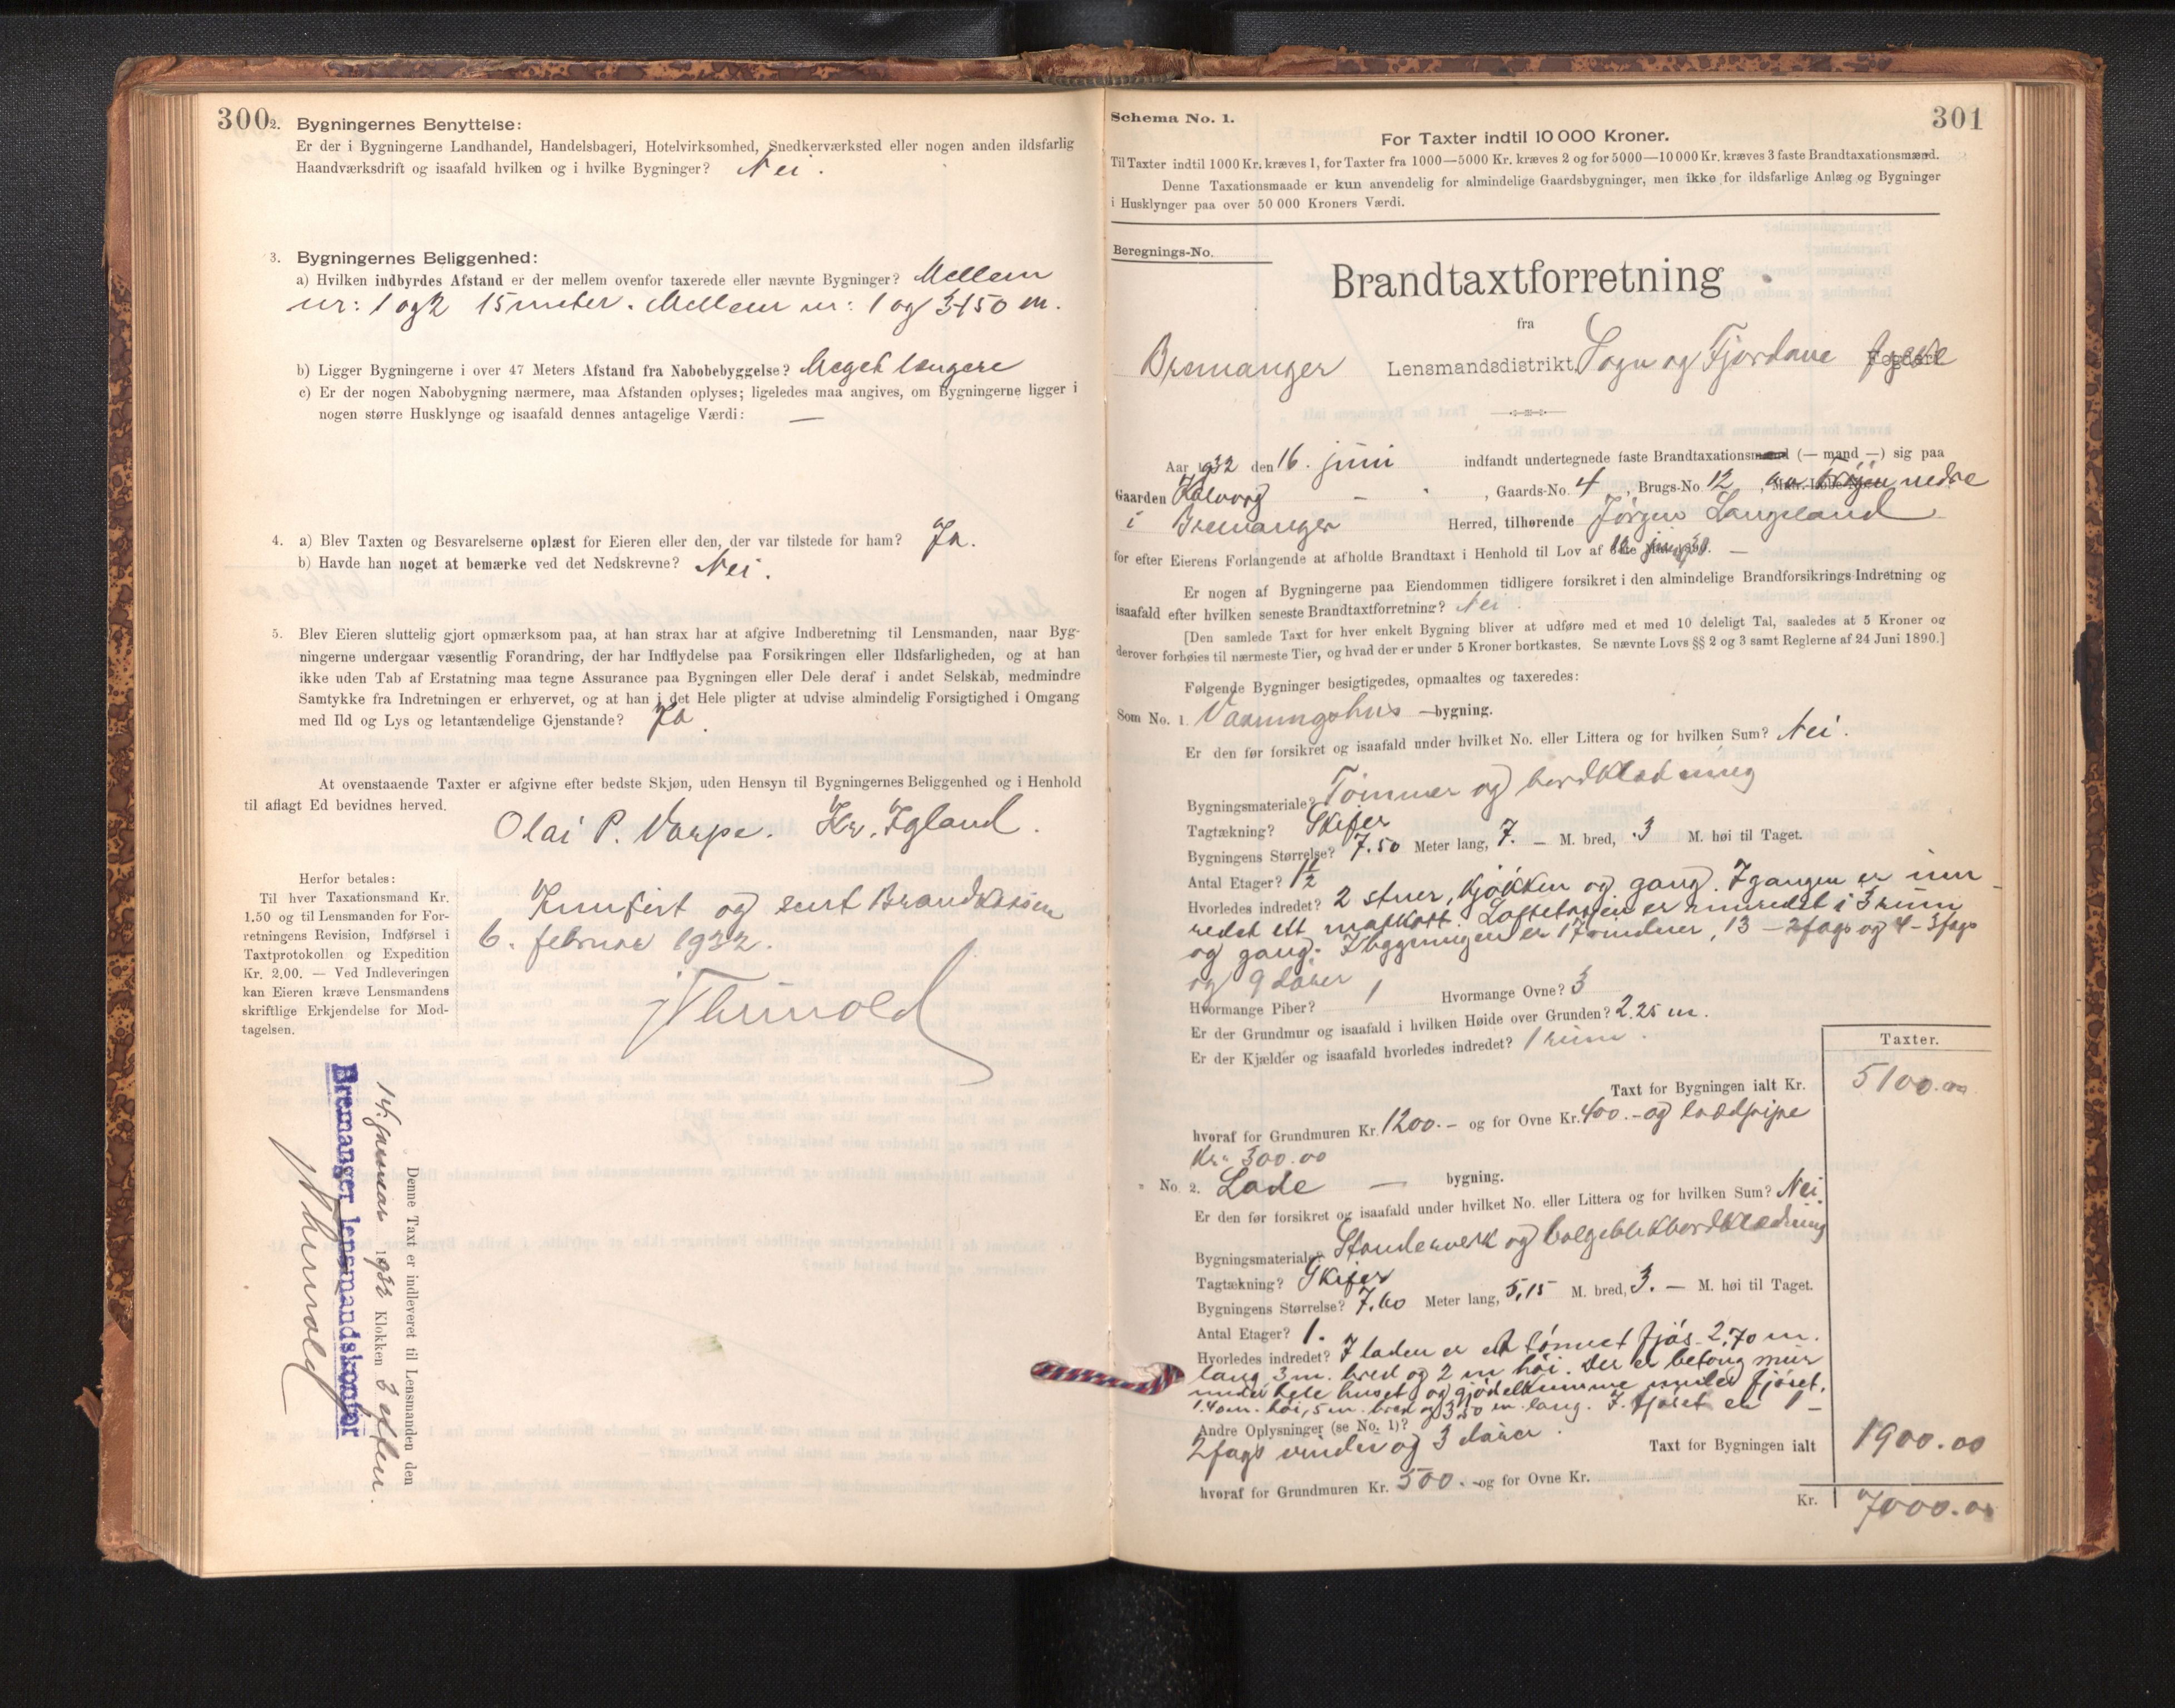 300
2. Bygningernes Benyttelse:
Er der i Bygningerne Landhandel, Handelsbageri, Hotelvirksomhed, Snedkerværksted eller nogen anden ildsfarlig
Haandværksdrift og isaafald hvilken og i hvilke Bygninger? Nei.
3. Bygningernes Beliggenhed:
a) Hvilken indbyrdes Afstand er der mellem ovenfor taxerede eller nævnte Bygninger? Mellem
nr: 1 og 2 15 meter. Mellem nr: 1 og 3 150 m.
b) Ligger Bygningerne i over 47 Meters Afstand fra Nabobebyggelse? Meget længere
c) Er der nogen Nabobygning nærmere, maa Afstanden oplyses; ligeledes maa angives, om Bygningerne ligger i
nogen større Husklynge og isaafald dennes antagelige Værdi: —
4. a) Blev Taxten og Besvarelserne oplæst for Eieren eller den, der var tilstede for ham? Ja.
b) Havde han noget at bemærke ved det Nedskrevne? Nei.
5. Blev Eieren sluttelig gjort opmærksom paa, at han strax har at afgive Indberetning til Lensmanden, naar Byg-
ningerne undergaar væsentlig Forandring, der har Indflydelse paa Forsikringen eller Ildsfarligheden, og at han
ikke uden Tab af Erstatning maa tegne Assurance paa Bygningen eller Dele deraf i andet Selskab, medmindre
Samtykke fra Indretningen er erhvervet, og at han i det Hele pligter at udvise almindelig Forsigtighed i Omgang
med Ild og Lys og letantændelige Gjenstande? Ja
At ovenstaaende Taxter er afgivne efter bedste Skjøn, uden Hensyn til Bygningernes Beliggenhed og i Henhold
til aflagt Ed bevidnes herved.
Olai P. Varpe. Kr. Igland.
Herfor betales:
Til hver Taxationsmand Kr.
1.50 og til Lensmanden for For-
retningens Revision, Indførsel i
Taxtprotokollen og Expedition
Kr. 2.00. — Ved Indleveringen
kan Eieren kræve Lensmandens
skriftlige Erkjendelse for Mod-
tagelsen.
og sent Brandkassen
6. februar 1932.
Denne Taxt er indleveret til Lensmanden den
14. januar 1932 Klokken 3 eftm.
Bremanger lensmandskontor
301
Schema No. 1.
For Taxter indtil 10 000 Kroner.
Til Taxter indtil 1000 Kr. kræves 1, for Taxter fra 1000—5000 Kr. kræves 2 og for 5000—10 000 Kr. kræves 3 faste Brandtaxationsmænd.
Denne Taxationsmaade er kun anvendelig for almindelige Gaardsbygninger, men ikke for ildsfarlige Anlæg og Bygninger
i Husklynger paa over 50 000 Kroners Værdi.
Beregnings-No.
Brandtaxtforretning
fra
Bremanger Lensmandsdistrikt, Sogn og Fjordane fylke
Aar 1932 den 16. juni indfandt undertegnede faste Brandtaxationsmænd (— mand —) sig paa
Gaarden Kalvåg, Gaards-No. 4, Brugs-No 12, nedre
i Bremanger Herred, tilhørende Jörgen Langeland
for efter Eierens Forlangende at afholde Brandtaxt i Henhold til Lov af
Er nogen af Bygningerne paa Eiendommen tidligere forsikret i den almindelige Brandforsikrings-Indretning og
isaafald efter hvilken seneste Brandtaxtforretning? Nei
[Den samlede Taxt for hver enkelt Bygning bliver at udføre med et med 10 deleligt Tal, saaledes at 5 Kroner og
derover forhøies til nærmeste Tier, og hvad der er under 5 Kroner bortkastes. Se nævnte Lovs §§ 2 og 3 samt Reglerne af 24 Juni 1890.]
Følgende Bygninger besigtigedes, opmaaltes og taxeredes:
Som No. 1. Vaaningshus —bygning.
Er den før forsikret og isaafald under hvilket No. eller Littera og for hvilken Sum? Nei.
Bygningsmateriale? Tömmer og bordklædning
Tagtækning? Skifer
Bygningens Størrelse? 7.50 Meter lang, 7. — M. bred, 3 M. høi til Taget.
Antal Etager? 1 1/2
Hvorledes indredet? 2 stuer, kjökken og gang. I gangen er inn-
redet ett matkott. Loftetasjen er innredet i 3 rum
og gang. I bygningen er 17 vinduer, 13 — 2fags og 4 — 3fags
og 9 dörer
Hvormange Piber? 1 Hvormange Ovne? 3
Er der Grundmur og isaafald i hvilken Høide over Grunden? 2.25 m.
Er der Kjælder og isaafald hvorledes indredet? 1 rum.
Taxter.
Taxt for Bygningen ialt Kr. 5100.00
hvoraf for Grundmuren Kr. 1200.— og for Ovne Kr. 400.— og
Kr. 300.00
" No. 2. Lade — bygning.
Er den før forsikret og isaafald under hvilket No. eller Littera og for hvilken Sum? Nei.
Bygningsmateriale? Standerverk og bølgeblikbordklædning
Tagtækning? Skifer
Bygningens Størrelse? 7.60 Meter lang, 5,15 M. bred, 3. — M. høi til Taget.
Antal Etager? 1.
Hvorledes indredet? I laden er ett tömret fjös 2,70 m.
lang 3 m. bred og 2 m höi. Der er betong mur
under hele huset og gjödelkumme under fjöset.
1.40 m. höi, 5 m. bred og 3,50 m. lang. I fjöset er 1 —
Andre Oplysninger (se No. 1)?
2 fags vindu og 3 dörer.
Taxt for Bygningen ialt 1900.00
hvoraf for Grundmuren Kr. 500.— og for Ovne Kr.
Kr. 7000.00